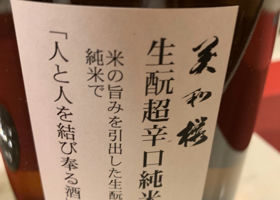 美和桜
生酛超辛口純米
米の旨みを引出した生酛
純米で
「人と人を結び奉る酒